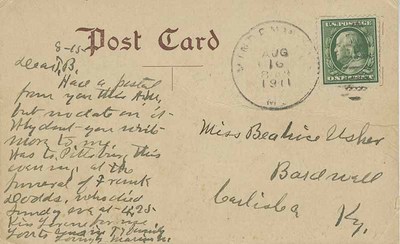 8-15-
Post Card
Dear B.
Have a postal
from you this A.M.
but no date on it
Why dont you write
more to me.
Was to Pittsburg this
evening at the
funeral of Frank
Dodds, who died
Sunday eve at 4.25
AUG
16
1911
Miss Beatrice Usher
Bardwell
Carlisle Co
Ky.